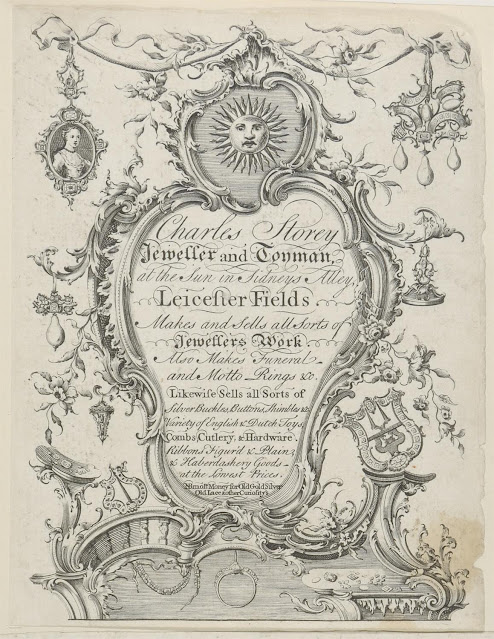 Charles Storey
Jeweller and Toyman,
at the Sun in Sidneys Alley,
Leicester Fields.
Makes and Sells all Sorts of
Jewellers Work
Also Makes Funeral
and Motto Rings &c.
Likewise Sells all Sorts of
Silver Buckles, Buttons, Thimbles &c
Variety of English & Dutch Toys,
Combs, Cutlery, & Hardware,
Ribbons Figur'd & Plain,
& Haberdashery Goods
at the lowest Prices.
NB most Money for Old Gold Silver
Old Lace & other Curiosity's